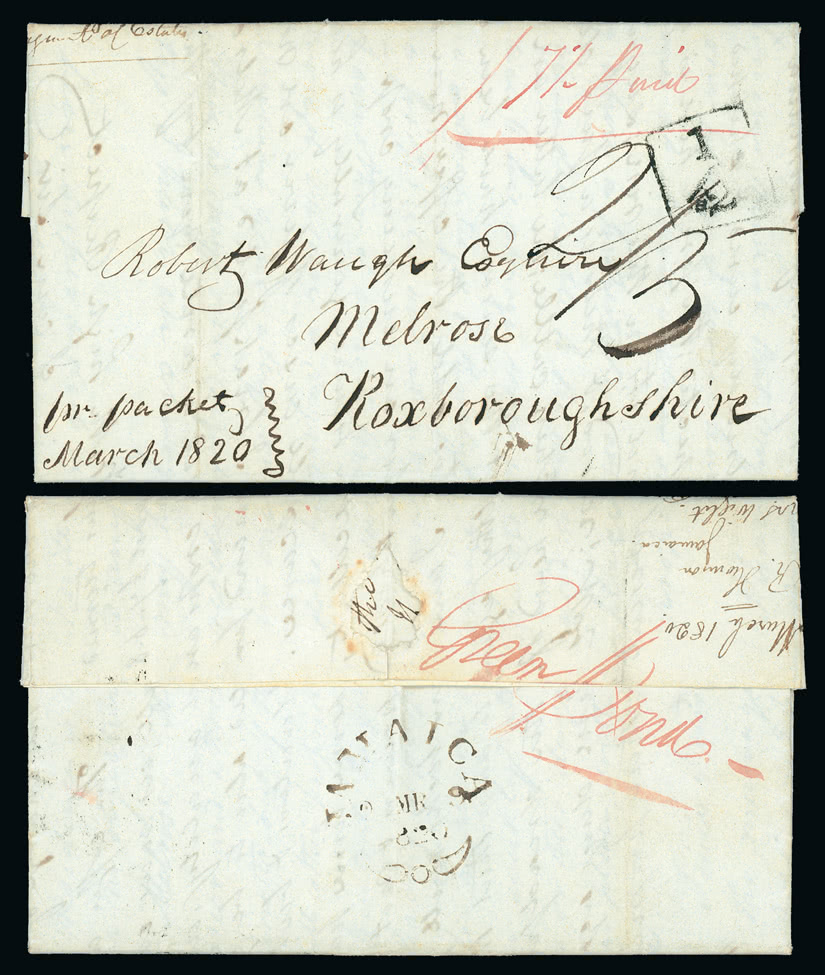 of Estate
1 7½ Paid
1/2
2/3
Robert Waugh Esquire
Melrose
Roxboroughshire
pr. packet
March 1820
Wight.
Jamaica.
March 1820
Green Pond
JAMAICA
MR